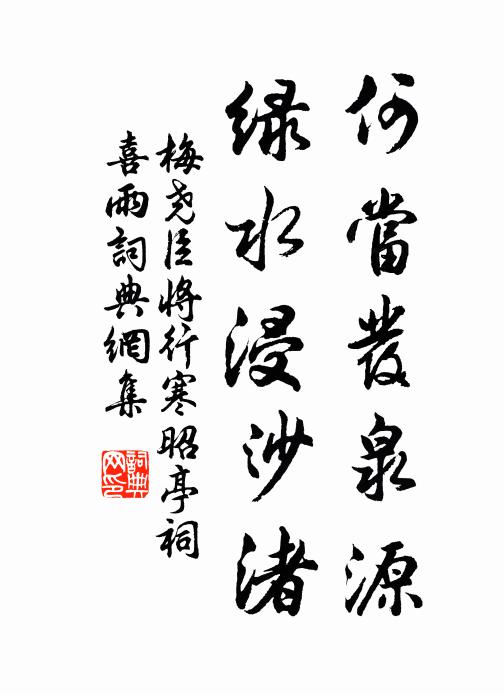 何當發泉源
綠水浸沙渚
梅堯臣將行寒昭亭祠
喜雨詞典網集
詞典
网印